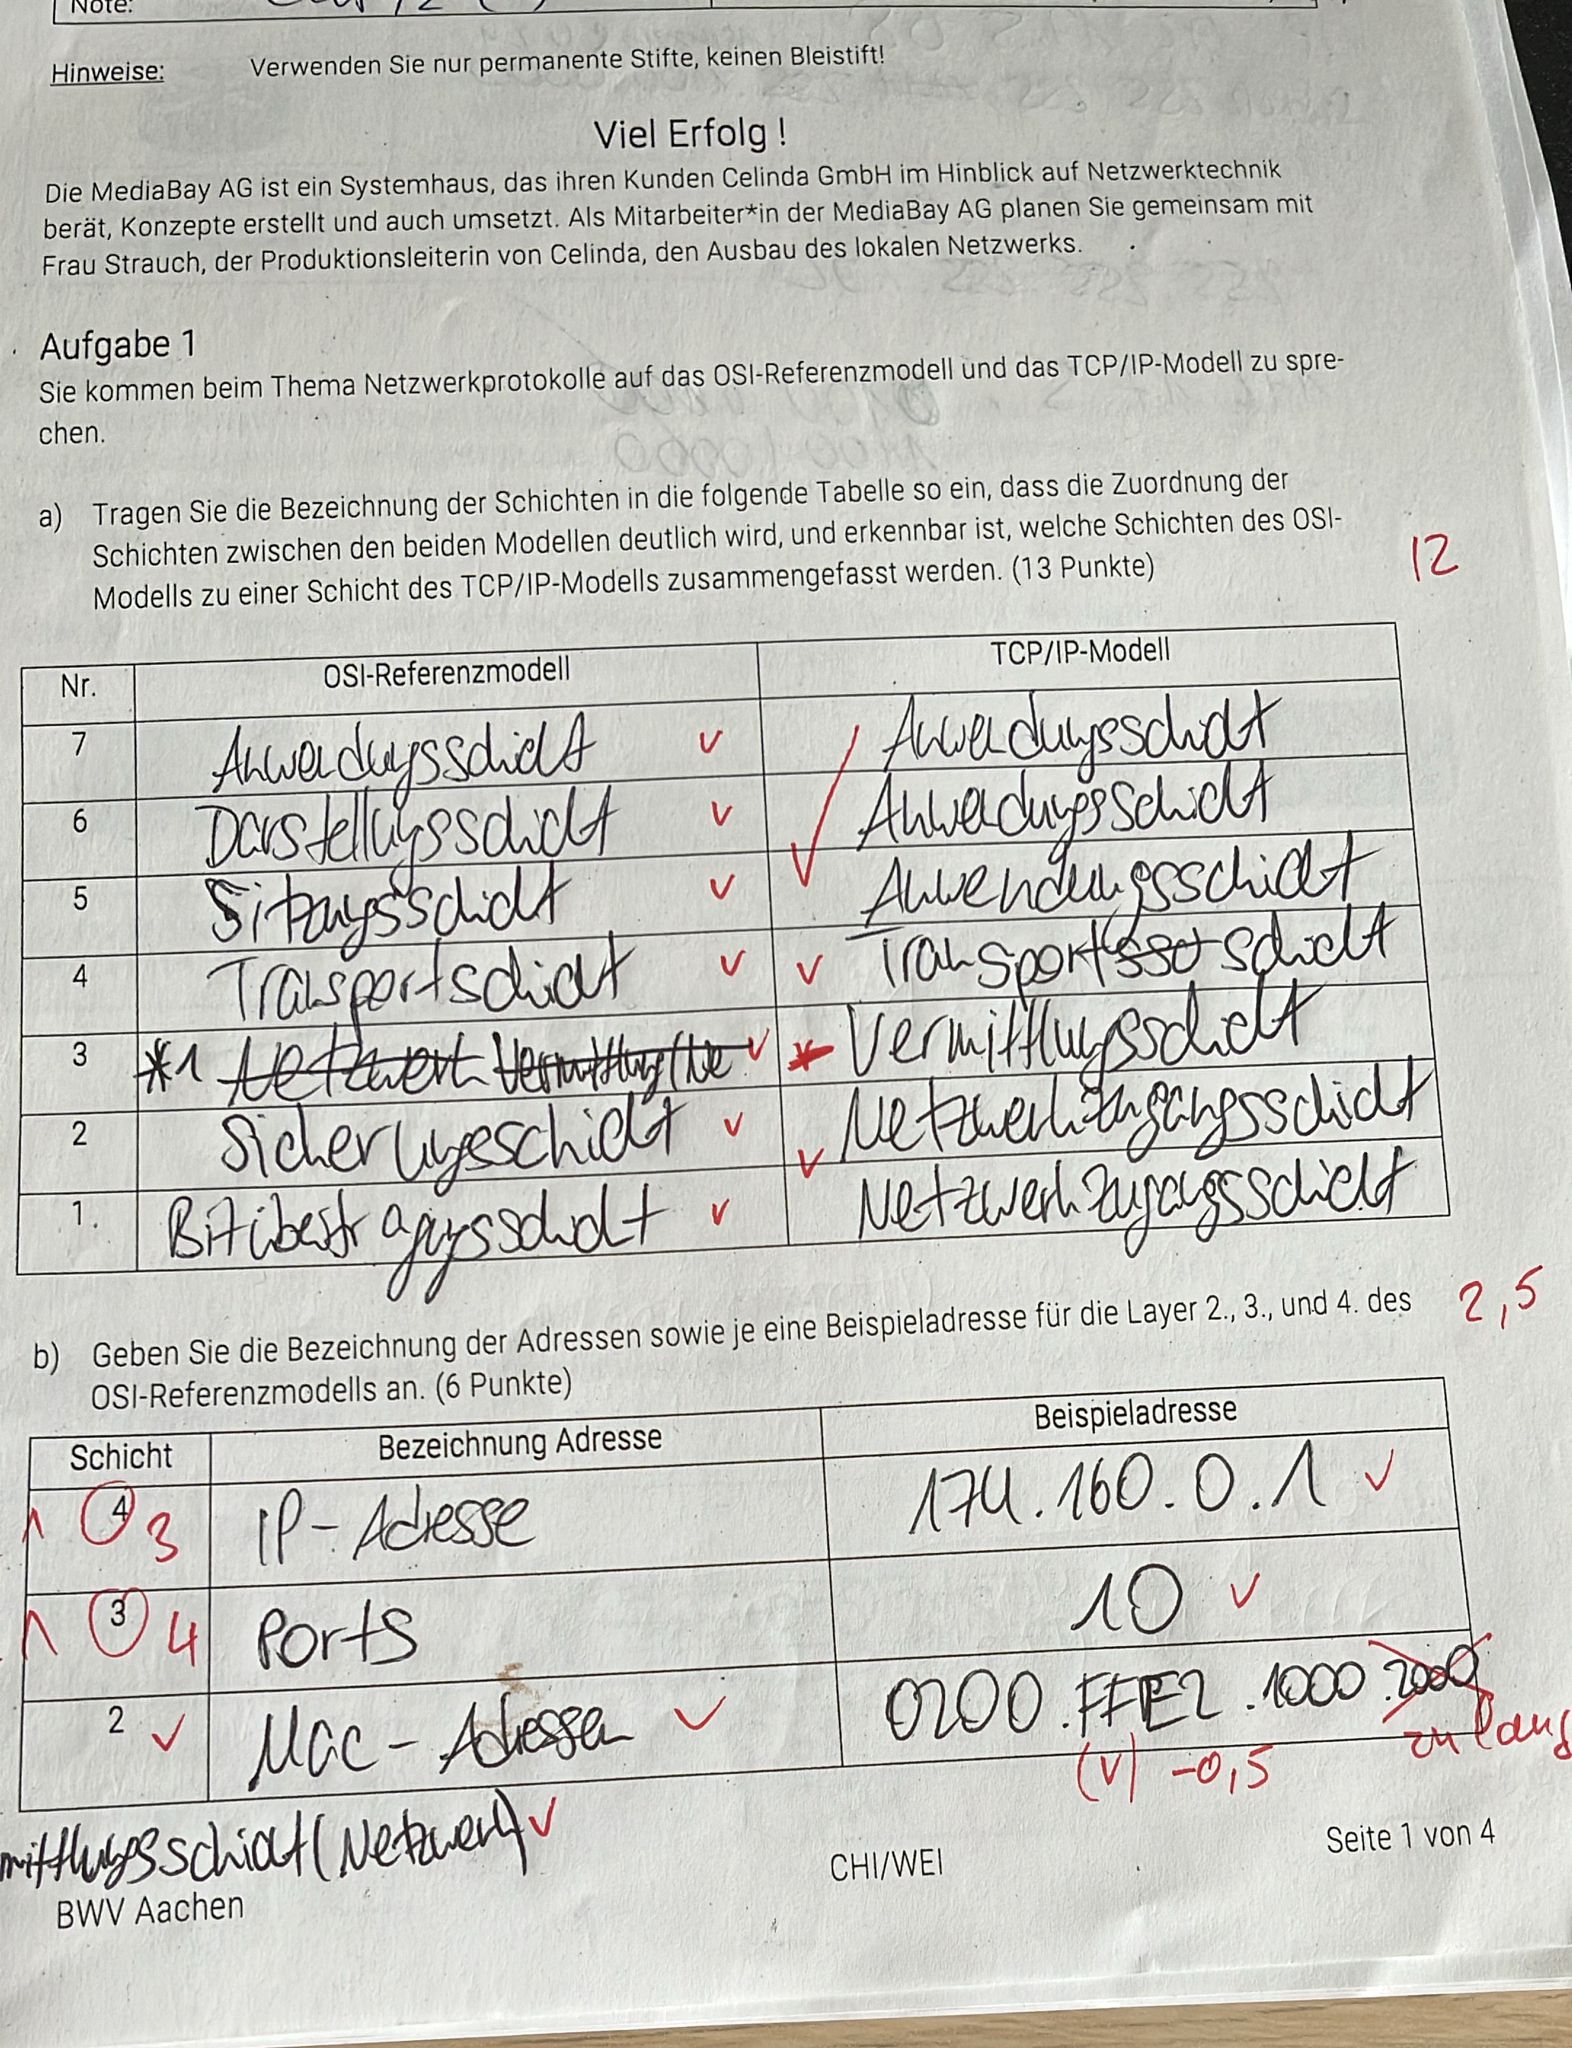 Note:
Hinweise: Verwenden Sie nur permanente Stifte, keinen Bleistift!
Viel Erfolg !
Die MediaBay AG ist ein Systemhaus, das ihren Kunden Celinda GmbH im Hinblick auf Netzwerktechnik
berät, Konzepte erstellt und auch umsetzt. Als Mitarbeiter*in der MediaBay AG planen Sie gemeinsam mit
Frau Strauch, der Produktionsleiterin von Celinda, den Ausbau des lokalen Netzwerks.
Aufgabe 1
Sie kommen beim Thema Netzwerkprotokolle auf das OSI-Referenzmodell und das TCP/IP-Modell zu spre-
chen.
a) Tragen Sie die Bezeichnung der Schichten in die folgende Tabelle so ein, dass die Zuordnung der
Schichten zwischen den beiden Modellen deutlich wird, und erkennbar ist, welche Schichten des OSI-
Modells zu einer Schicht des TCP/IP-Modells zusammengefasst werden. (13 Punkte) 12
Nr. OSI-Referenzmodell TCP/IP-Modell
7 Anwendungsschicht Anwendungsschicht
6 Darstellungsschicht Anwendungsschicht
5 Sitzungsschicht Anwendungsschicht
4 Transportschicht Transport schicht
3 *1 Netzwerk Vermittlung Vermittlungsschicht
2 Sicherungsschicht Netzwerkzugangsschicht
1. Bitübertragungsschicht Netzwerkzugangsschicht
b) Geben Sie die Bezeichnung der Adressen sowie je eine Beispieladresse für die Layer 2., 3., und 4. des 2,5
OSI-Referenzmodells an. (6 Punkte)
Schicht Bezeichnung Adresse Beispieladresse
4 3 IP-Adresse 174.160.0.1
3 4 Ports 10
2 Mac-Adressen 0200.FFE2.1000.2000
(v) -0,5 zu lang
mittlungsschicht (Netzwerk)
BWV Aachen CHI/WEI Seite 1 von 4